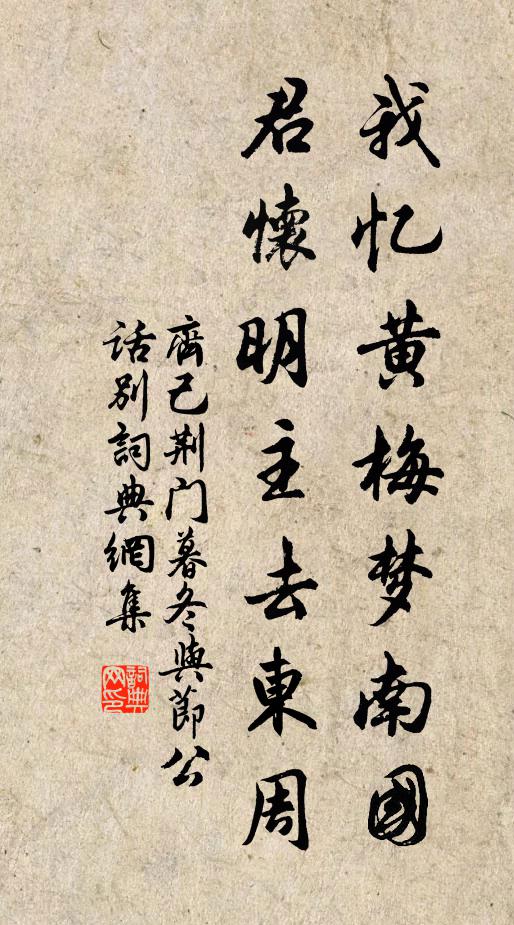 我忆黄梅梦南國
君懷明主去東周
齊己荆门暮冬與節公
话别詞典網集
詞典网印